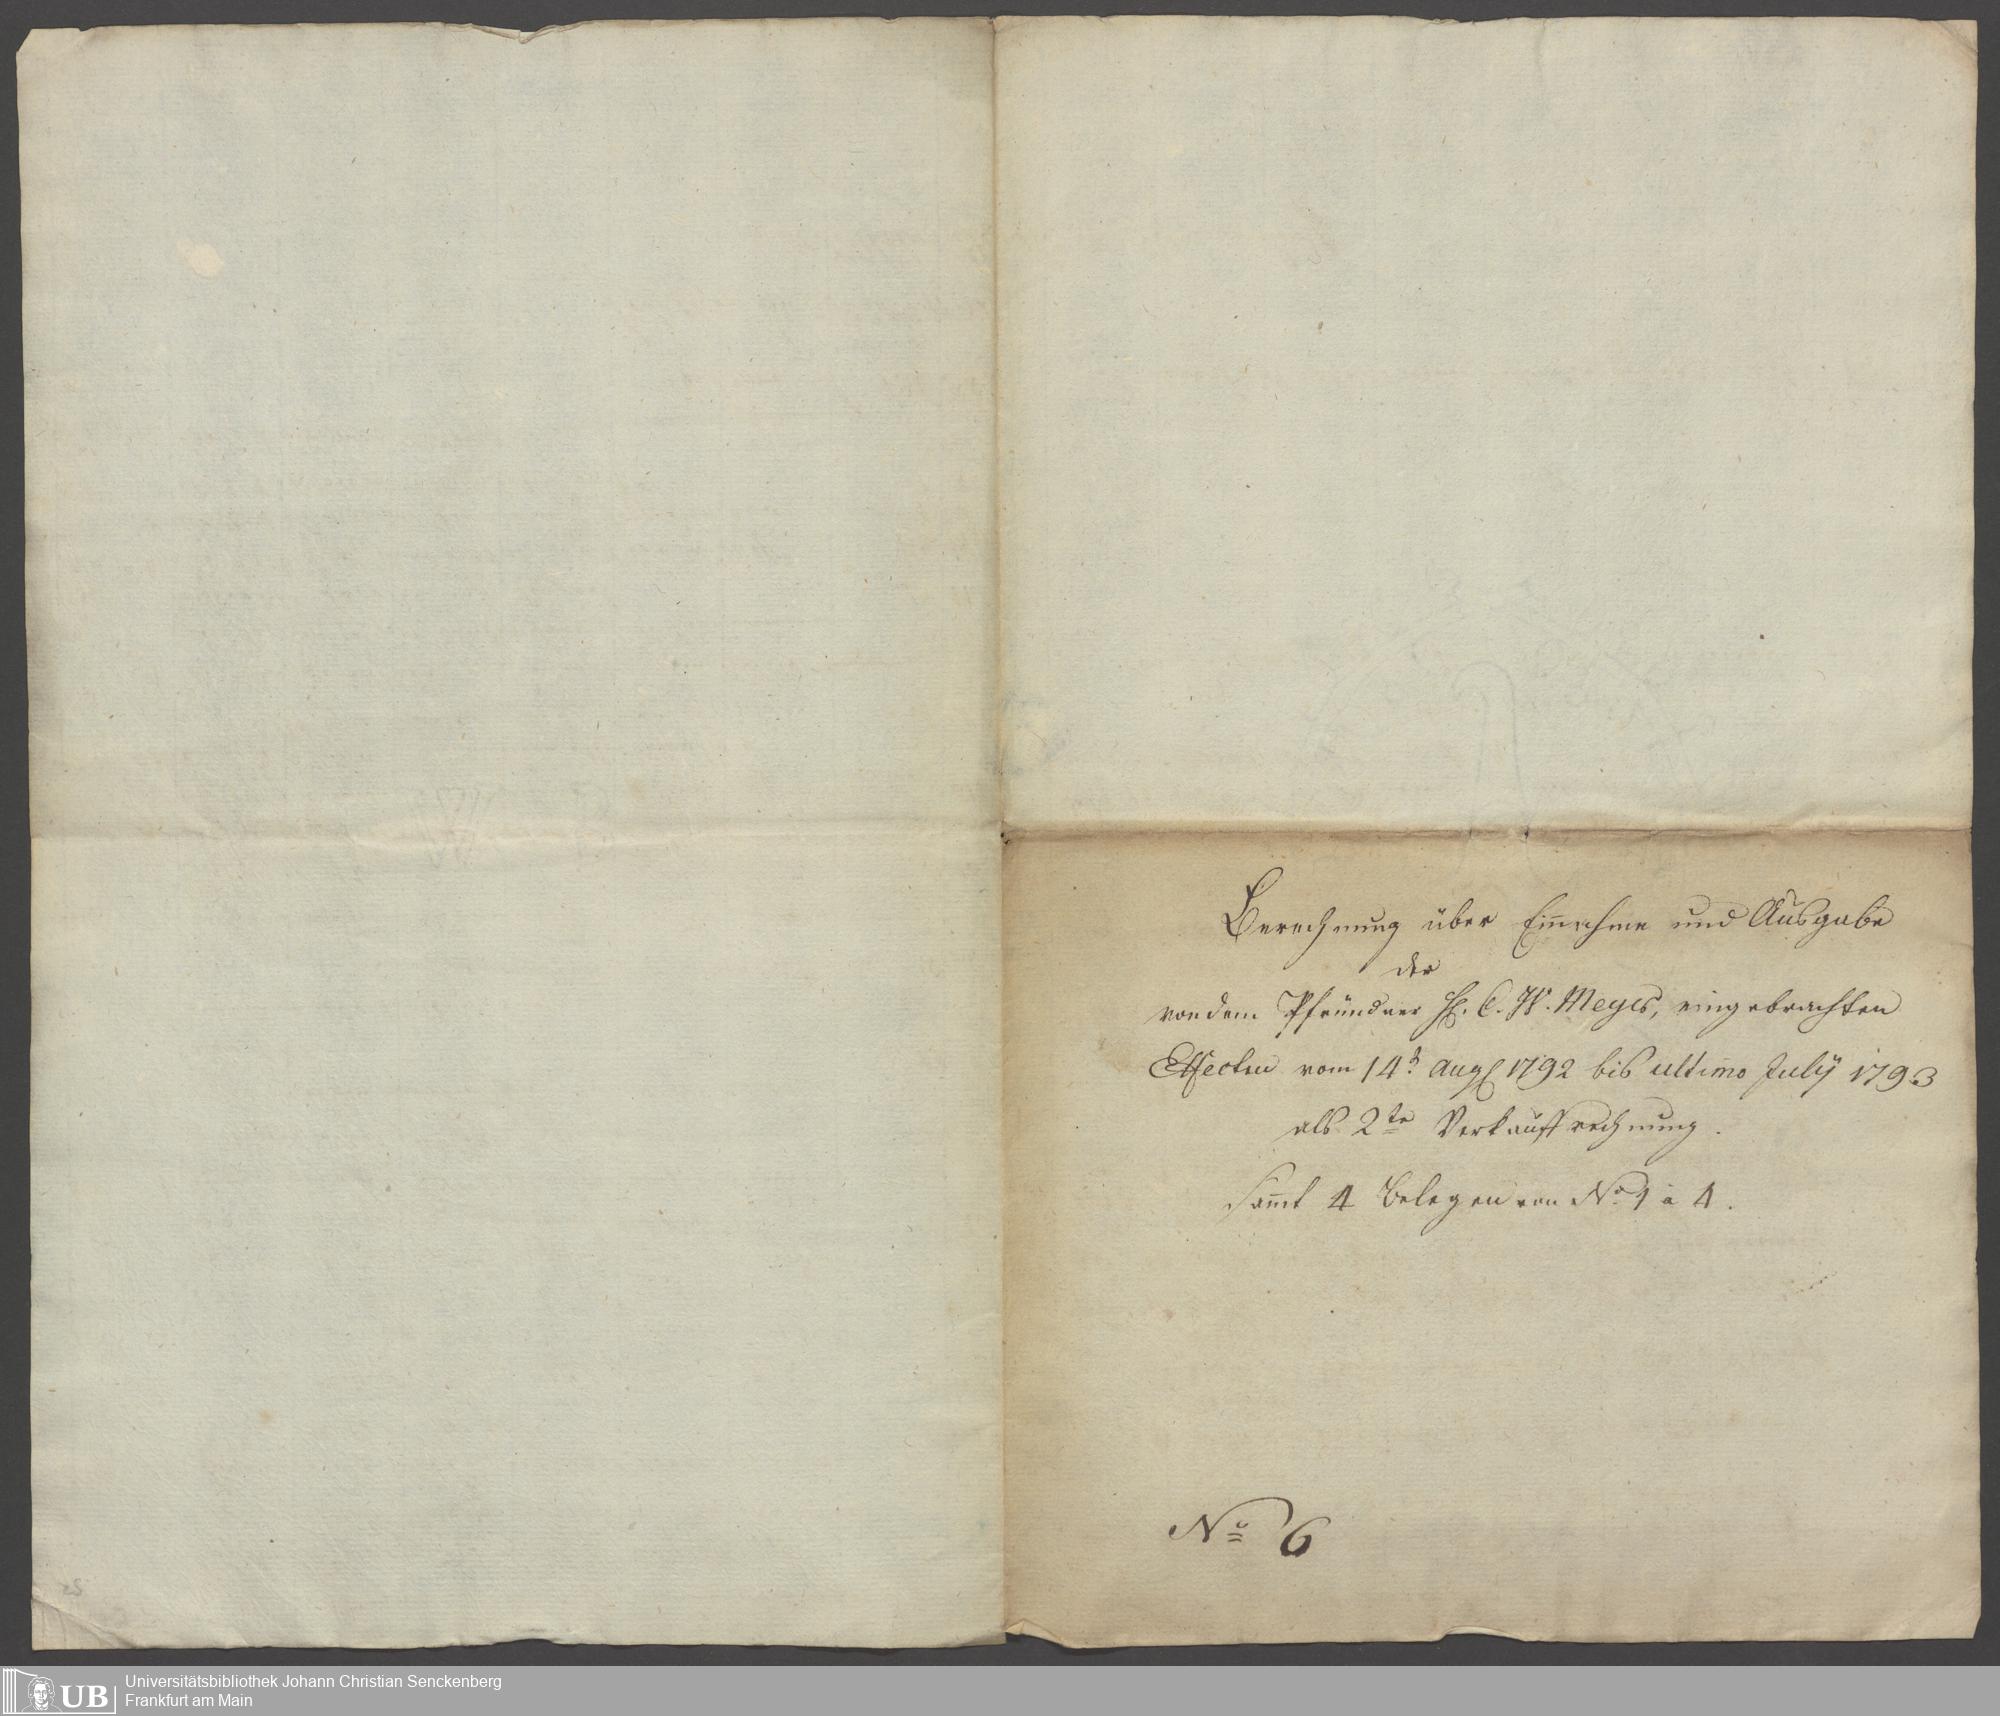 Berechnung über Einnahme und Ausgabe
der
von dem Pfründner H. C. W. Meyer, eingebrachten
Effecten vom 14t. Aug 1792 bis ultimo July 1793
als 2te Verkauffrechnung.
Sammt 4 Belegen von No 1 a 4.
No 6
UB
Universitätsbibliothek Johann Christian Senckenberg
Frankfurt am Main